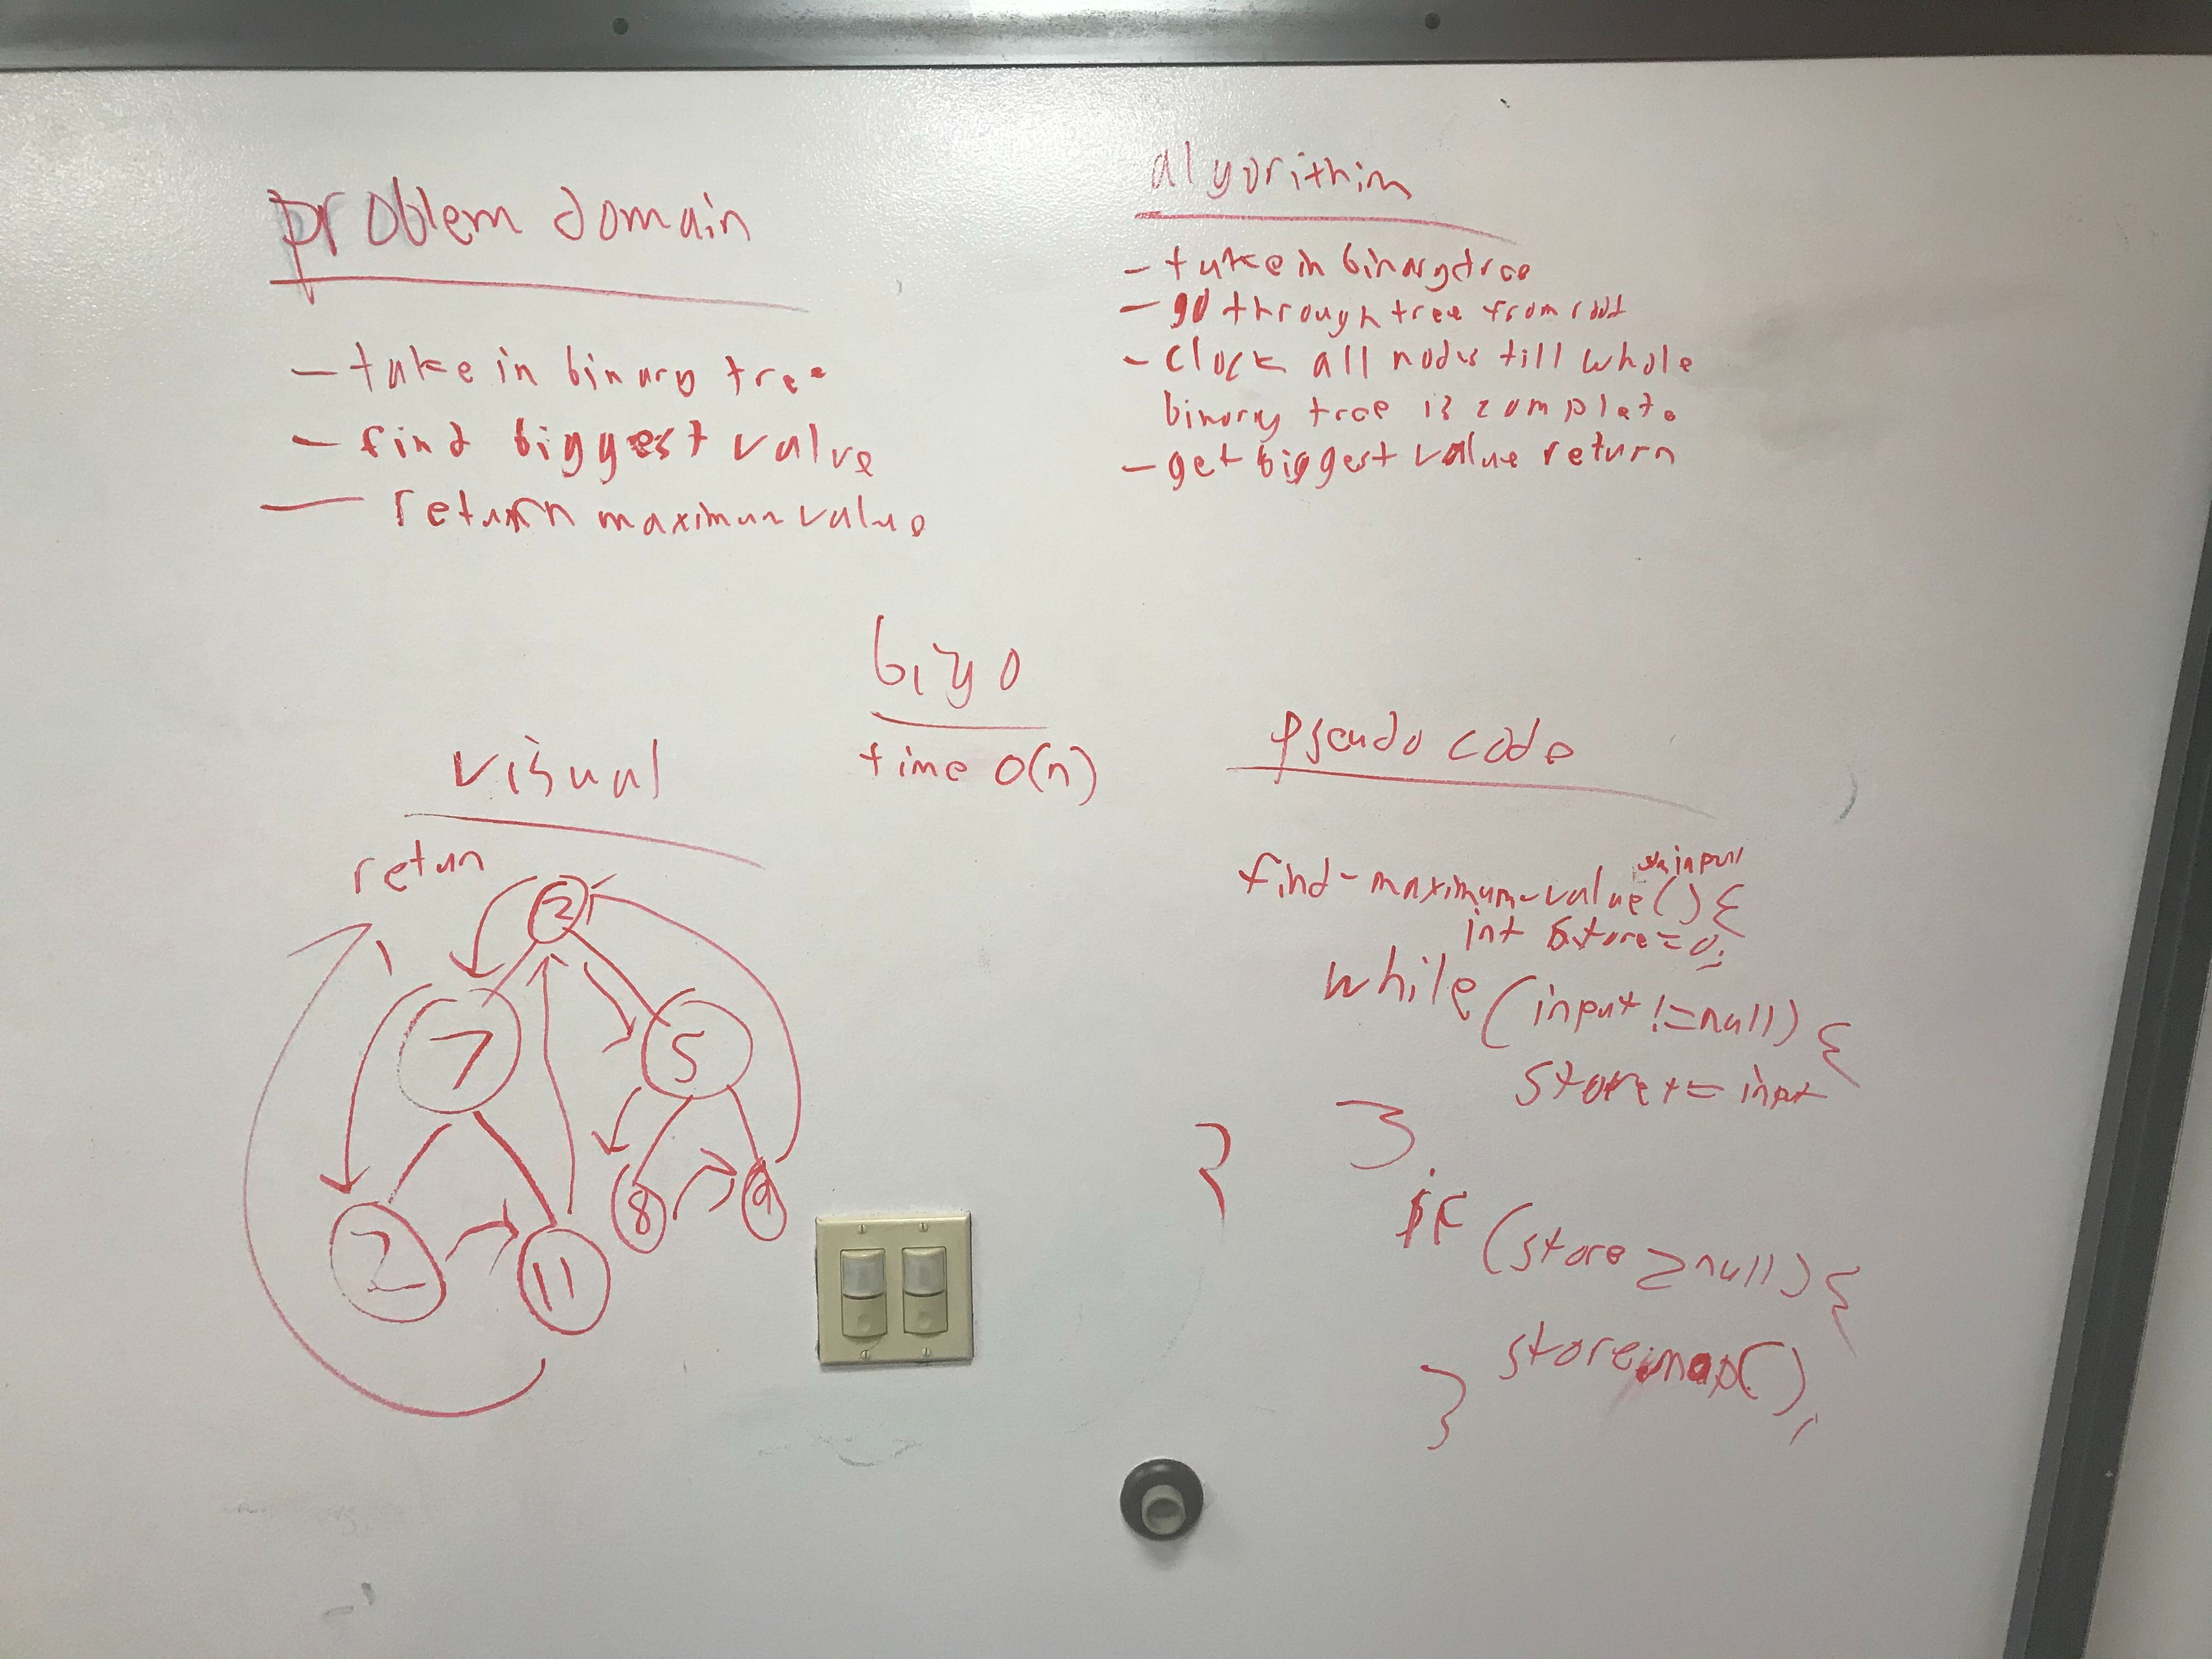 problem domain
- take in binary tree
- find biggest value
- return maximum value
algorithim
- take in binary tree
- go through tree from root
- clock all nodes till whole
binary tree is complete
- get biggest value return
big o
time O(n)
visual
retun
2
7
5
2
11
8
9
pseudo code
input
find-maximum-value(){
int store=0;
while (input !=null) {
store += input
}
}
if (store ≥ null) {
store.map();
}